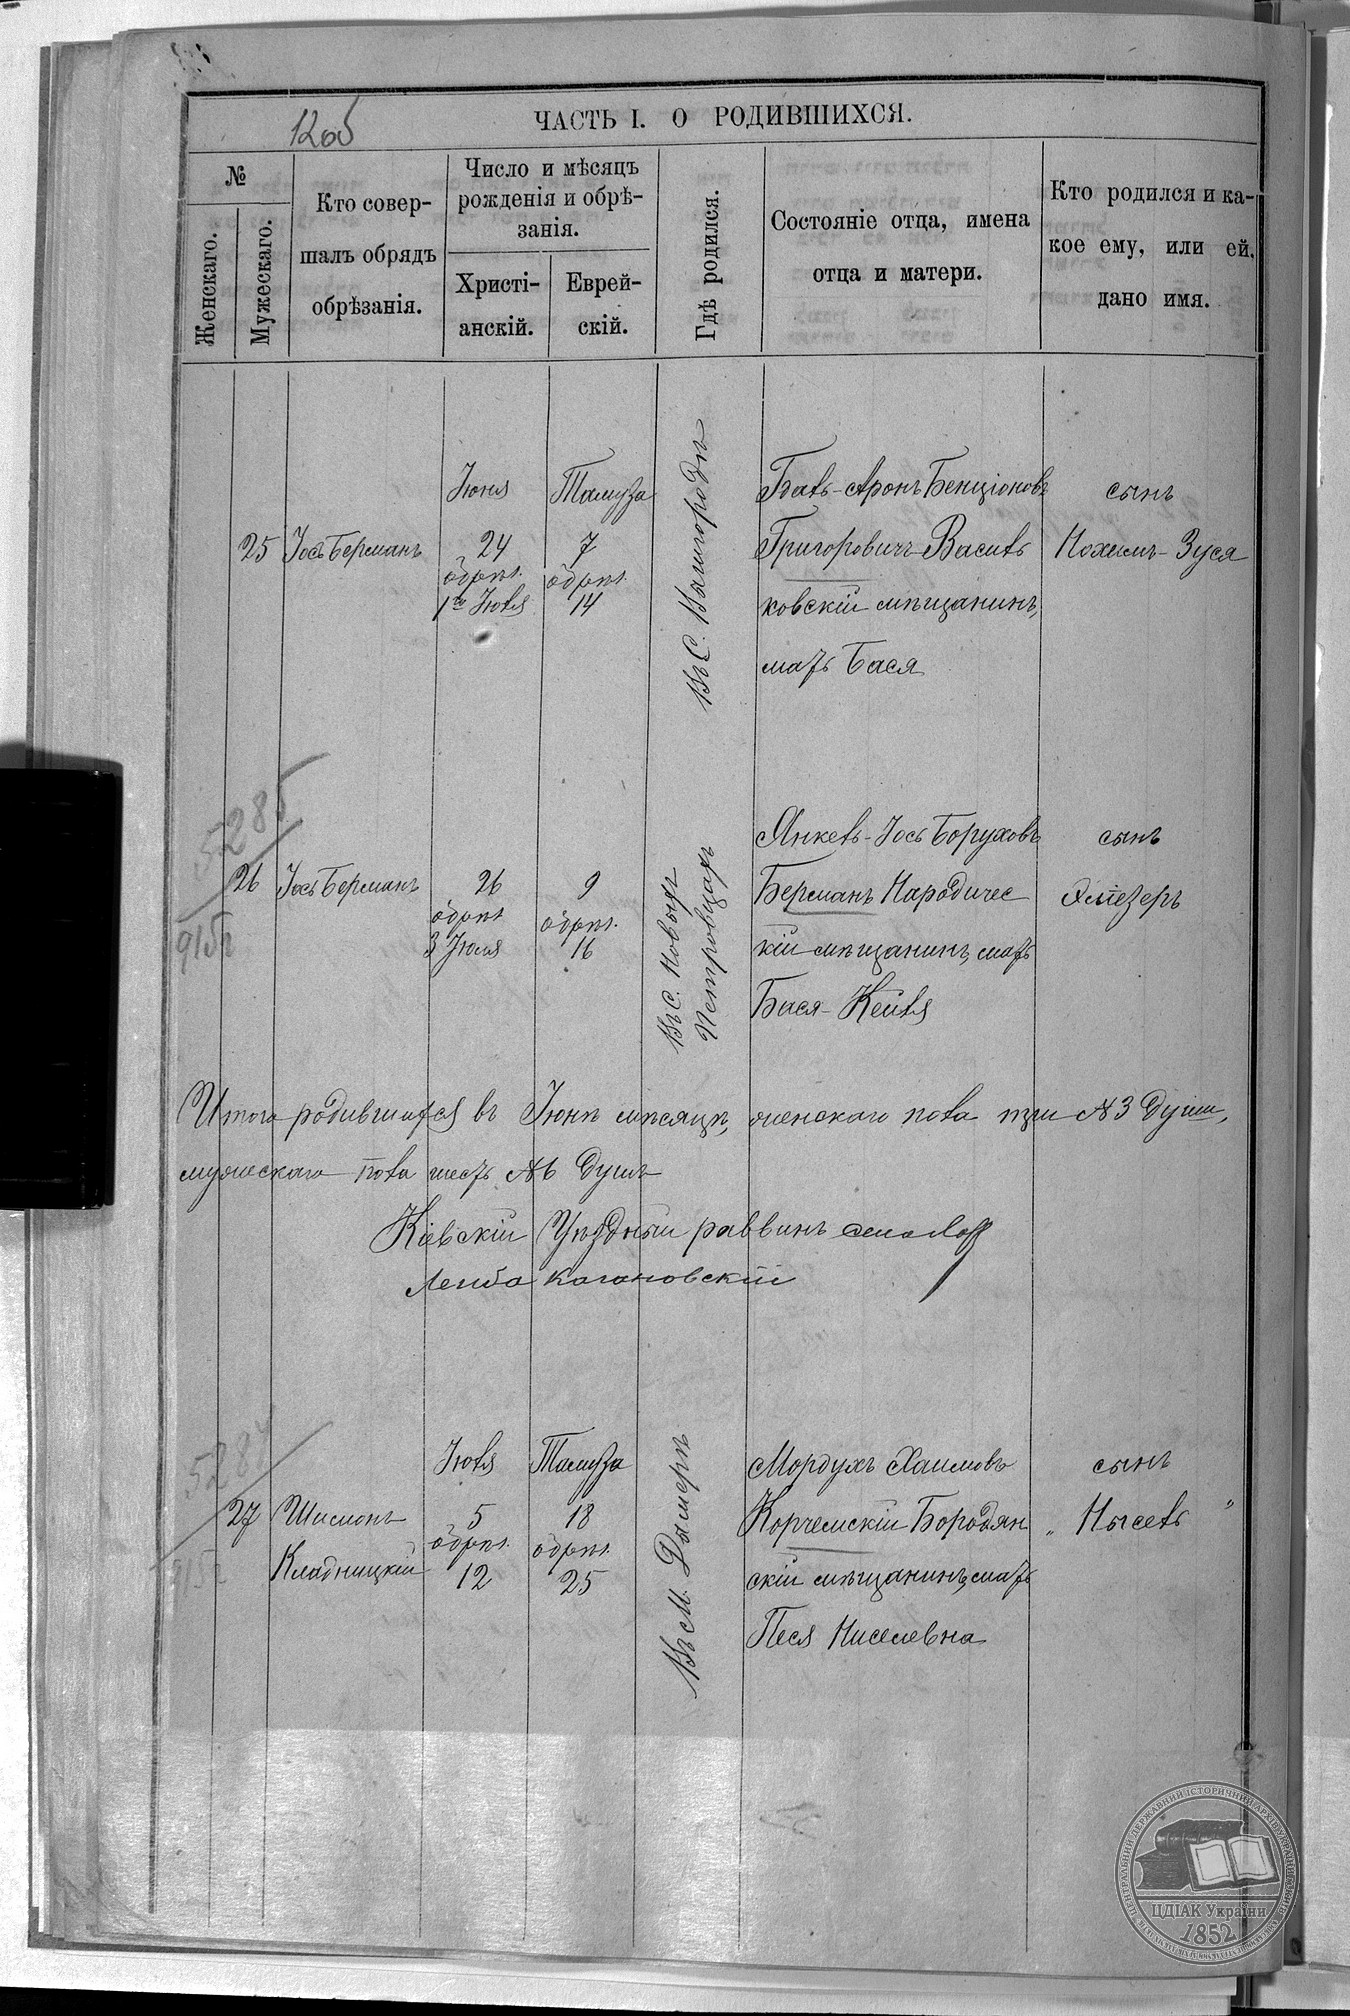 12об
ЧАСТЬ I. О РОДИВШИХСЯ.
№
Женскаго.
Мужескаго.
Кто совер-
шалъ обрядъ
обрѣзанія.
Число и мѣсяцъ
рожденія и обрѣ-
занія.
Христі-
анскій.
Еврей-
скій.
Гдѣ родился.
Состояніе отца, имена
отца и матери.
Кто родился и ка-
кое ему, или ей,
дано имя.
25
Іось Берманъ
Іюня
24
обрѣз.
1го Іюля
Тамуза
7
обрѣз.
14
Въ С.
Аронъ Бенціоновъ
Григоровичъ Василь
ковскій мѣщанинъ,
мать Бася
сынъ
Нохимъ-Зуся
5286
26
915
Іось Берманъ
26
обрѣз.
3 Іюля
9
обрѣз.
16
Въ С. Новыхъ
Петровцахъ
Янкель-Іось Боруховъ
Берманъ Народичес
кій мѣщанинъ, мать
Бася-Кейля
сынъ
Эліезеръ
Итого родившихся въ Іюнѣ мѣсяцѣ, женскаго пола три №3 души,
мужескаго пола шесть №6 душъ
Кіевскій Уѣздный раввинъ
Лейба Кагановскій
5287
27
915
Шимонъ
Кладницкій
Іюля
5
обрѣз.
12
Тамуза
18
обрѣз.
25
Въ М. Дымерѣ
Мордухъ Хаимовъ
Корчемскій Бородян
скій мѣщанинъ, мать
Песя Ниселевна
сынъ
„ Нысель "
ЦДІАК України
1852